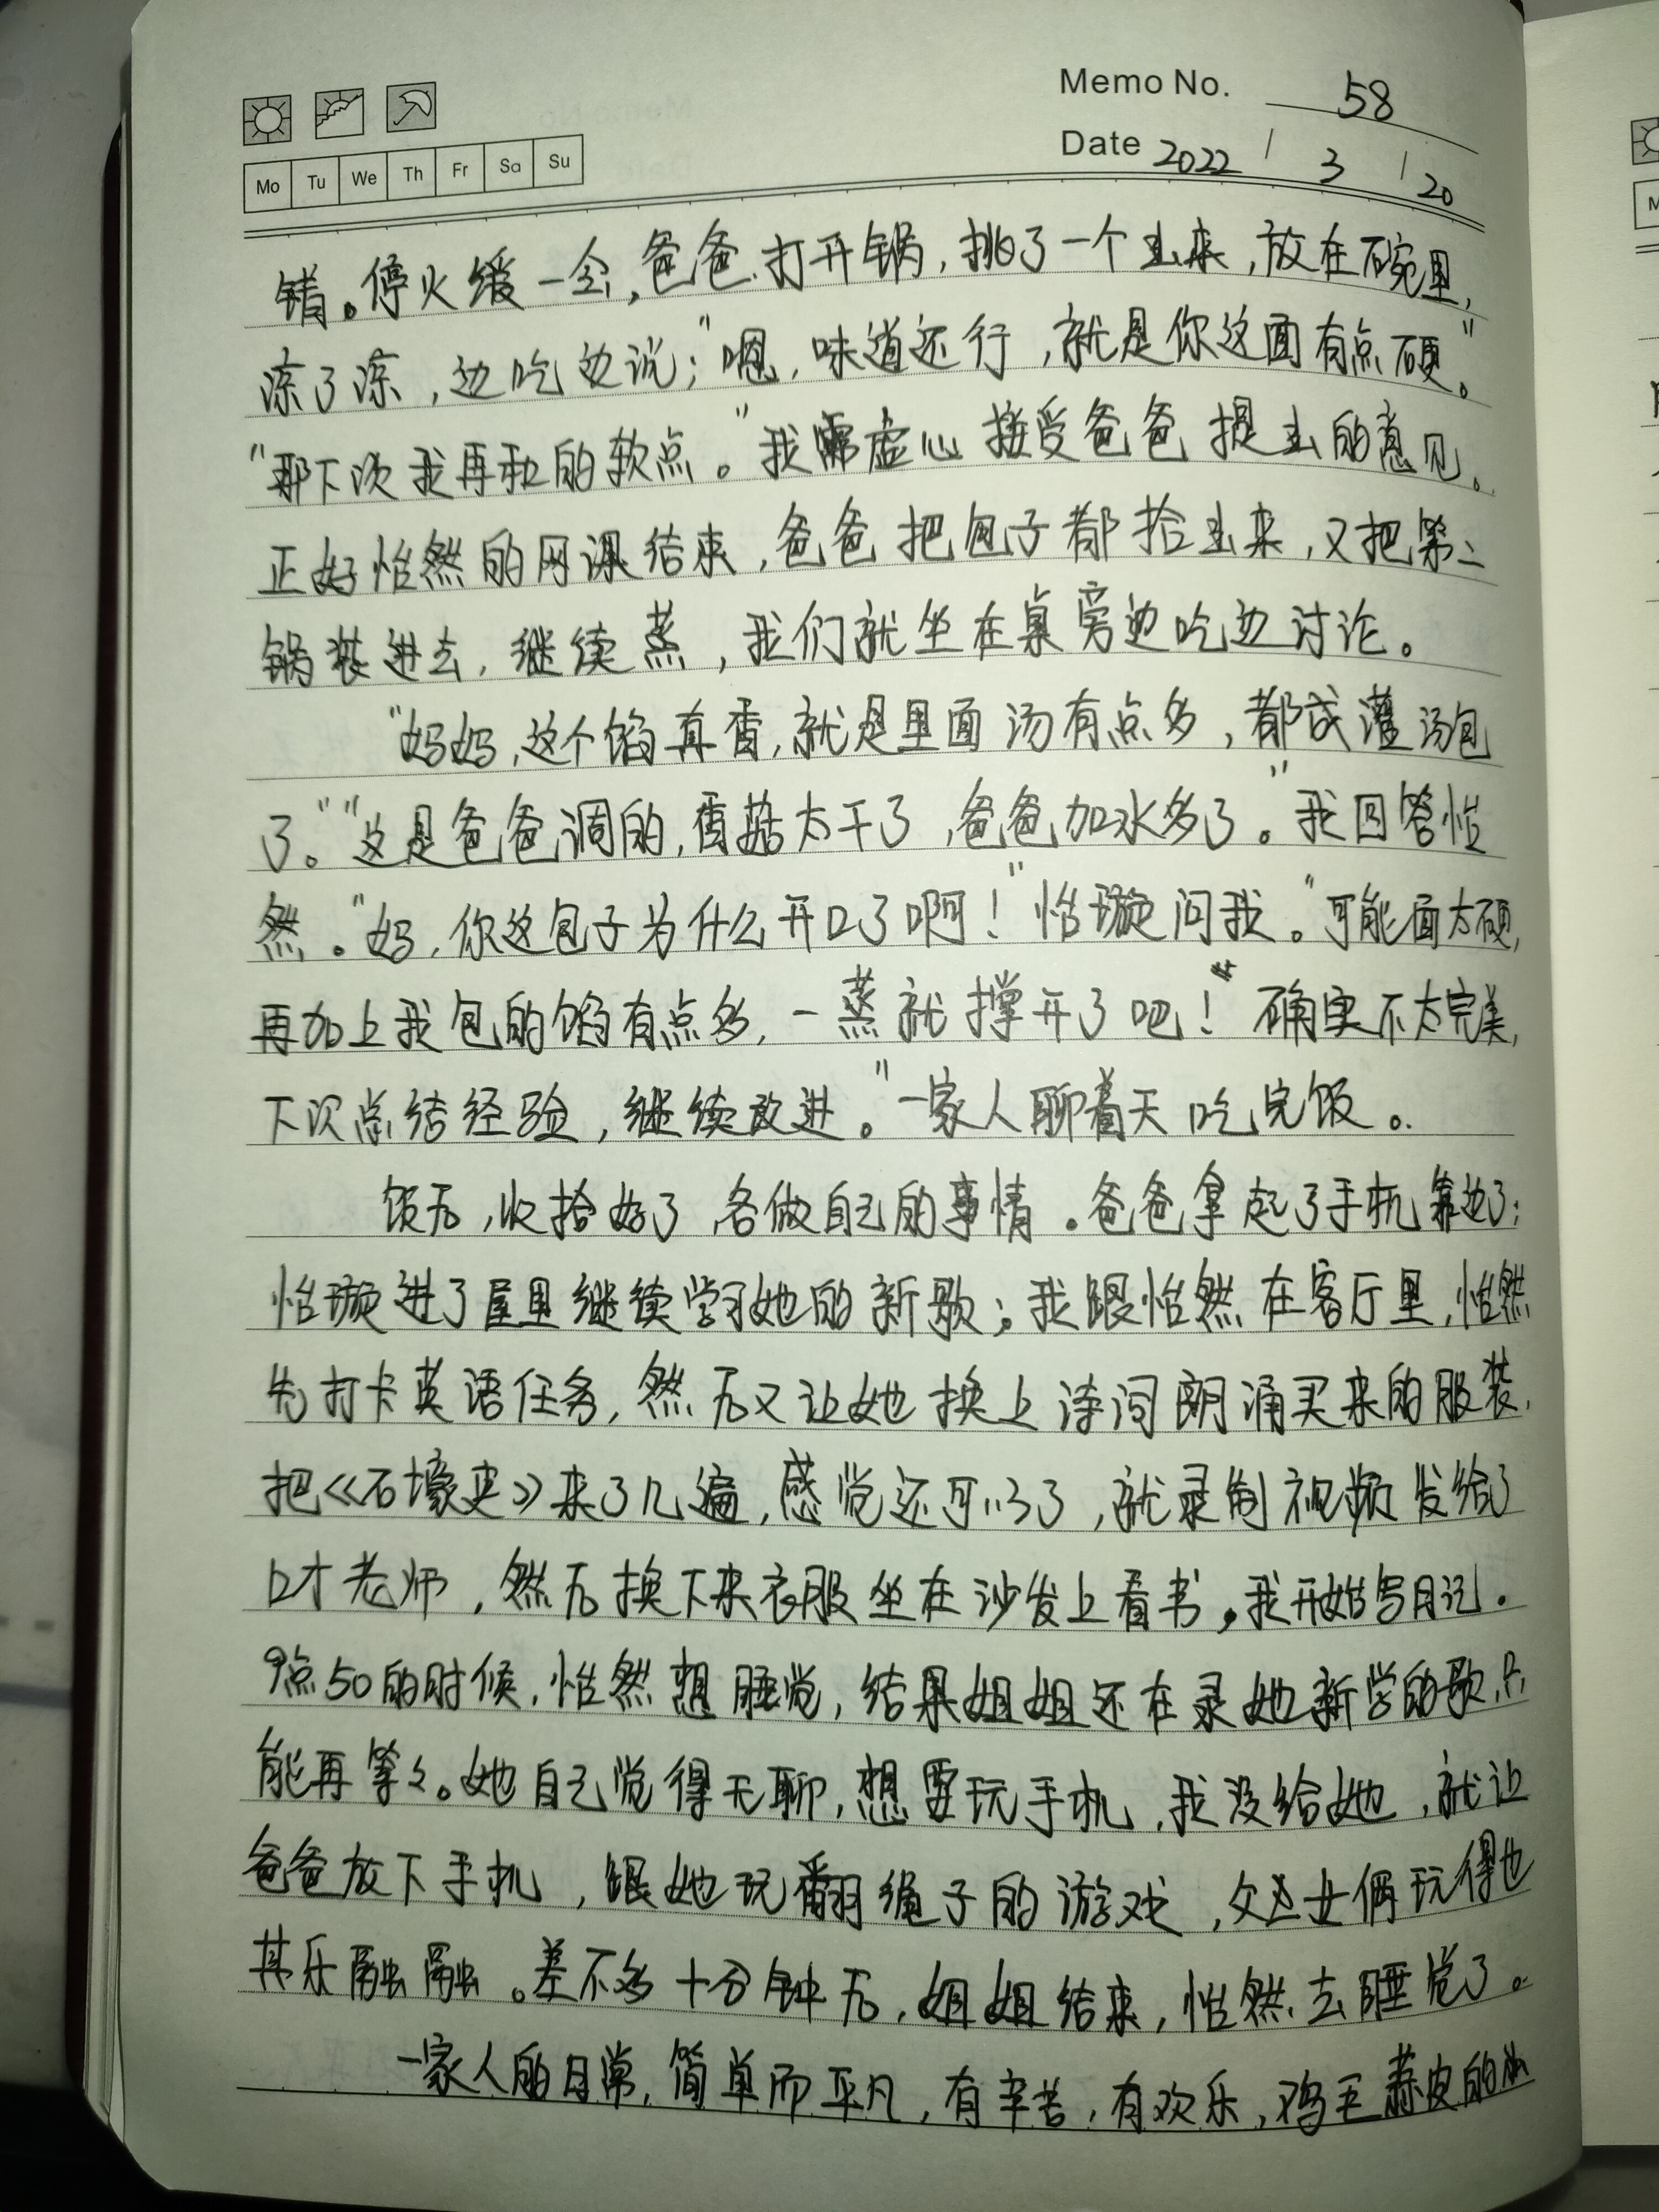 Memo No. 58
Mo Tu We Th Fr Sa Su
Date 2022 / 3 / 20
错。停火缓一会,爸爸打开锅,挑了一个出来,放在碗里,
凉了凉,边吃边说:"嗯,味道还行,就是你这面有点硬。"
"那下次我再和的软点。"我需虚心接受爸爸提出的意见。
正好怡然的网课结束,爸爸把包子都拾出来,又把第二
锅装进去,继续蒸,我们就坐在桌旁边吃边讨论。
"妈妈,这个馅真香,就是里面汤有点多,都成灌汤包
了。""这是爸爸调的,香菇太干了,爸爸加水多了。"我回答怡
然。"妈,你这包子为什么开口了啊!"怡璇问我。"可能面太硬,
再加上我包的馅有点多,一蒸就撑开了吧!""确实不太完美,
下次总结经验,继续改进。"一家人聊着天吃完饭。
饭后,收拾好了,各做自己的事情。爸爸拿起了手机靠边了;
怡璇进了屋里继续学习她的新歌;我跟怡然在客厅里,怡然
先打卡英语任务,然后又让她换上诗词朗诵买来的服装,
把《石壕吏》来了几遍,感觉还可以了,就录制视频发给了
口才老师,然后换下来衣服坐在沙发上看书,我开始写日记。
9点50的时候,怡然想睡觉,结果姐姐还在录她新学的歌,只
能再等等。她自己觉得无聊,想要玩手机,我没给她,就让
爸爸放下手机,跟她玩翻绳子的游戏,父女俩玩得也
其乐融融。差不多十分钟后,姐姐结束,怡然去睡觉了。
一家人的日常,简单而平凡,有辛苦,有欢乐,鸡毛蒜皮的